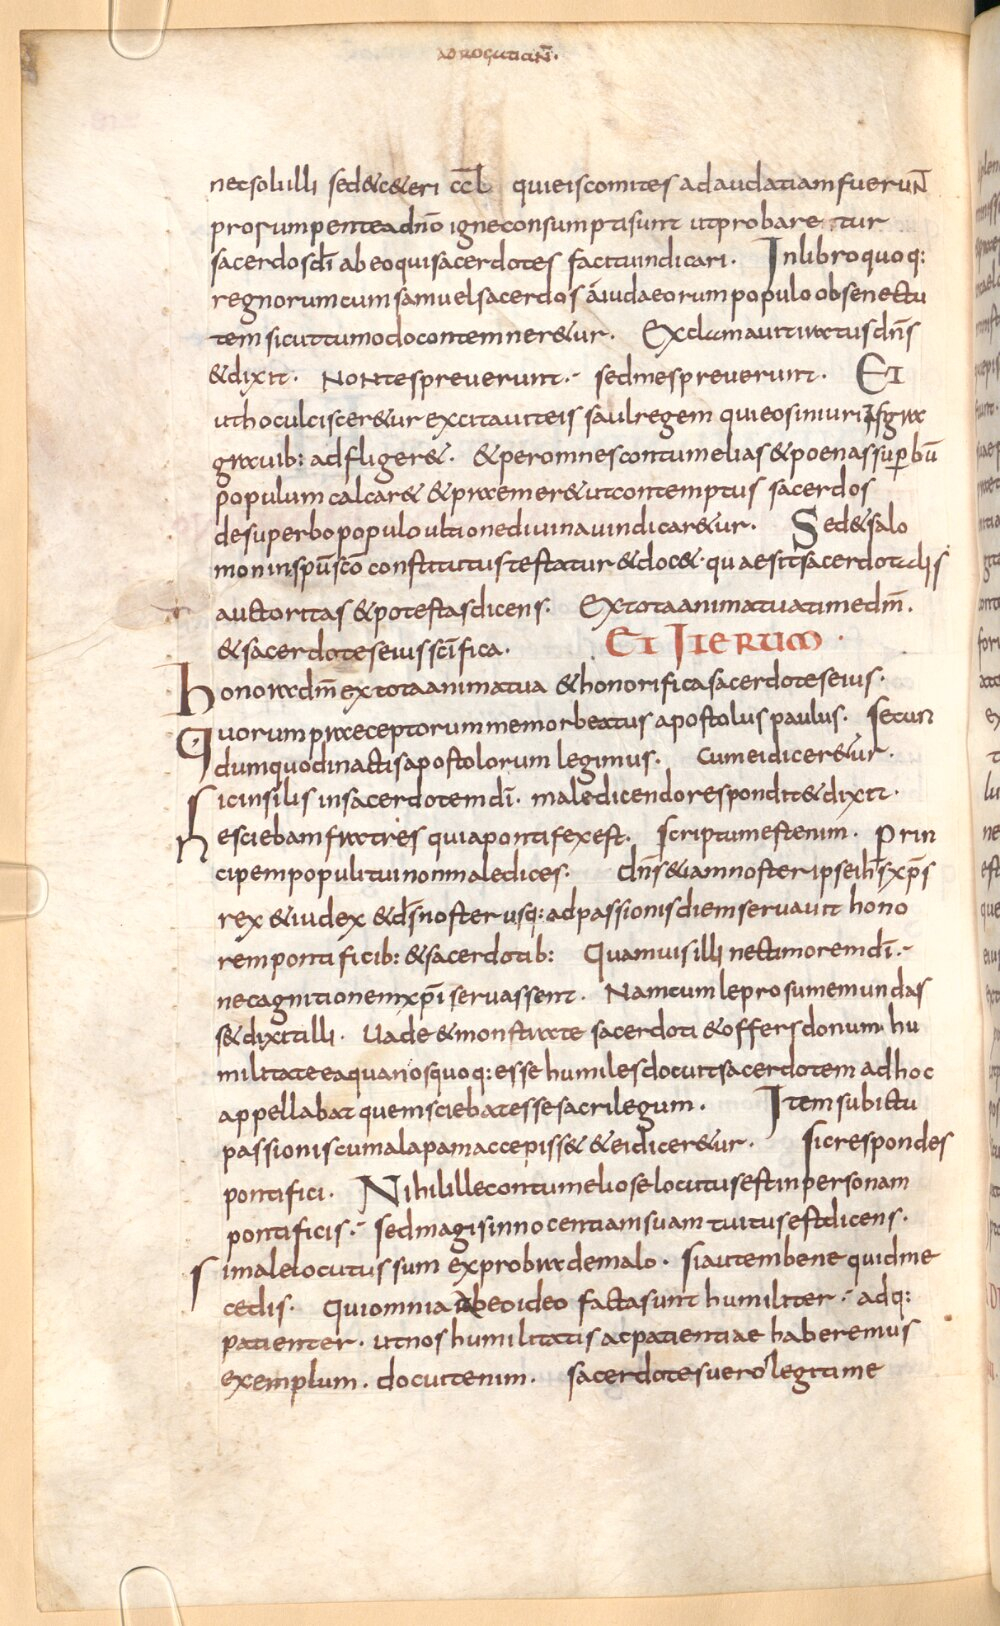 AD ROGATIAN̄.
nec soli illi sed & c&eri cc̄l qui eis comites ad audatiam fuerun̄
prorumpente a dn̄o igne consumpti sunt ut probare tur
sacerdos dī ab eo qui sacerdotes facit uindicari. In libro quoq:
regnorum cum samuel sacerdos á iudaeorum populo ob senectu
tem sicut tu modo contemner&ur. Exclamauit iratus dn̄s
& dixit. Non te spreuerunt. sed me spreuerunt. Et
ut hoc ulciscer&ur excitauit eis saul regem qui eos iniuriis gra
grauib: adfliger&. & per omnes contumelias & poenas superbū
populum calcar& & praemer& ut contemptus sacerdos
de superbo populo ultione diuina uindicar&ur. Sed & salo
mon in spū scō constitutus testatur & doc&. quae sit sacerdotalis
auctoritas & potestas dicens. Ex tota anima tua time dm̄.
& sacerdotes eius scīfica. ET ITERUM.
honora dm̄ ex tota anima tua & honorifica sacerdotes eius.
Quorum praeceptorum memor beatus apostolus paulus. secun
dum quod in actis apostolorum legimus. Cum ei dicer&ur.
Sic insilis in sacerdotem dī. maledicendo respondit & dixit.
Nesciebam fratres quia pontifex est. scriptum est enim. Prin
cipem populi tui non maledices. dn̄s &iam noster ipse ih̄s xp̄s
rex & iudex & ds̄ noster usq: ad passionis diem seruauit hono
rem pontificib: & sacerdotib: Quamuis illi nec timorem dī.
nec agnitionem xp̄i seruassent. Nam cum leprosum emundas
s& dixit illi. Uade & monstra te sacerdoti & offers donum. hu
militate ea qua nos quoq: esse humiles docuit sacerdotem adhoc
appellabat quem sciebat esse sacrilegum. Item sub ictu
passionis cum alapam accepiss& & ei dicer&ur. sic respondes
pontifici. Nihil ille contumeliose locutus est in personam
pontificis. sed magis innocentiam suam tuitus est dicens.
Si male locutus sum exprobra de malo. si autem bene quid me
cedis. Qui omnia ab eo ideo facta sunt humiliter. adq:
patienter. ut nos humilitatis ac patientiae haberemus
exemplum. docuit enim. sacerdotes uero legitime